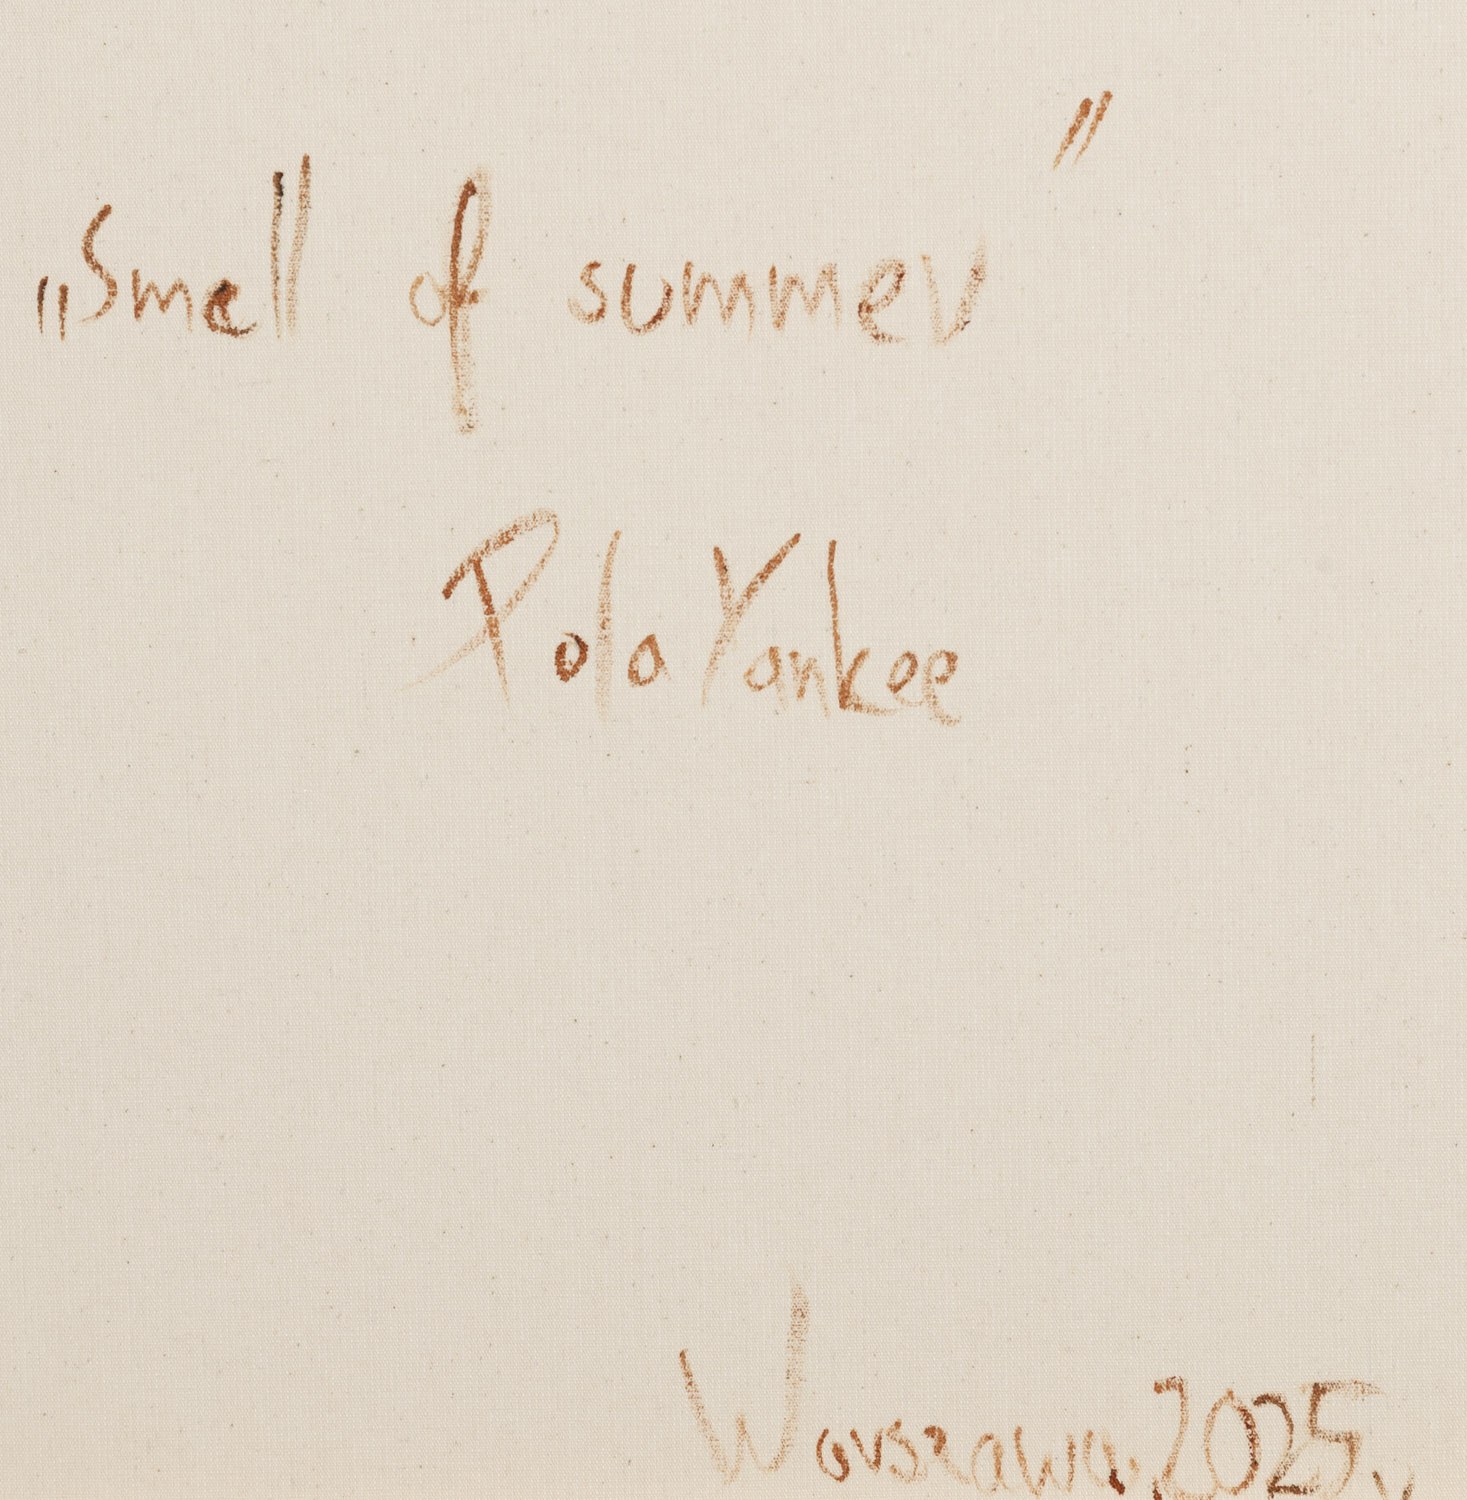 „Smell of summer"
Pola Yankee
Warszawa, 2025,